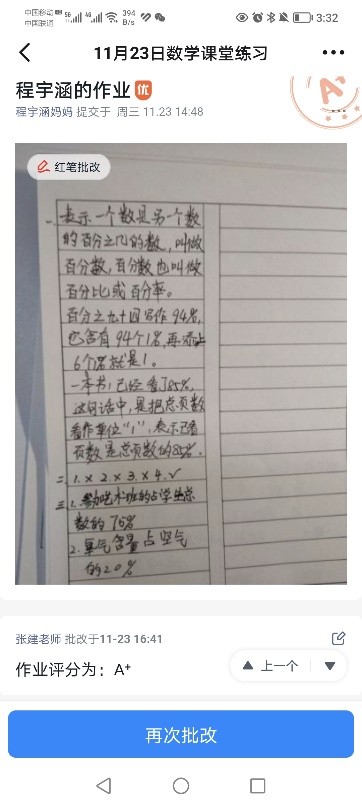 中国移动 HD 5G 4G 394 B/s 3:32
中国联通
11月23日数学课堂练习
程宇涵的作业 优
A+
程宇涵妈妈 提交于 周三 11.23 14:48
红笔批改
一、表示一个数是另一个数
的百分之几的数，叫做
百分数，百分数也叫做
百分比或百分率。
百分之九十四写作94%，
它含有94个1%，再添上
6个1%就是1。
一本书，已经看了85%，
这句话中，是把总页数
看作单位“1”，表示已看
页数是总页数的85%。
二、1.× 2.× 3.× 4.✓
三、1.参加艺术班的占学生总
数的75%
2.氧气含量占空气
的20%
张建老师 批改于11-23 16:41
作业评分为：A+
上一个
再次批改